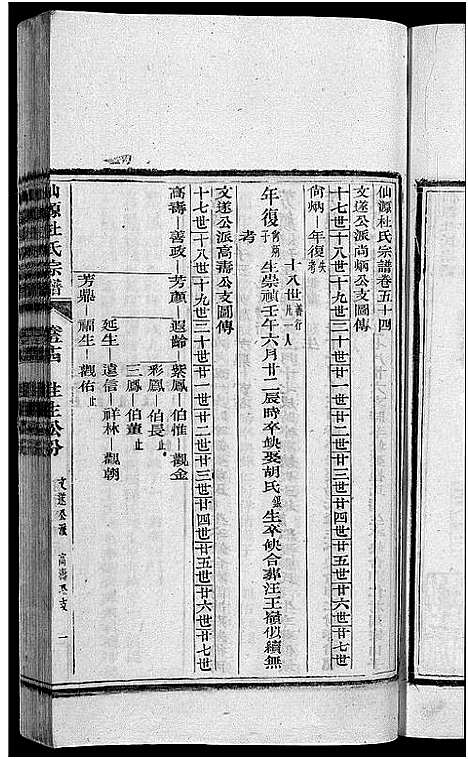 仙源杜氏宗譜卷五十四
文遂公派尚炳公支圖傳
十七世十八世十九世二十世廿一世廿二世廿三世廿四世廿五世廿六世廿七世
尚炳─年復失考
十八世善行凡一人
年復尚炳子生崇禎壬午六月廿二辰時卒缺娶胡氏生卒缺合葬汪王嶺似續無
考
文遂公派高壽公支圖傳
十七世十八世十九世二十世廿一世廿二世廿三世廿四世廿五世廿六世廿七世
高壽─善政─芳顏─遐齡─紫鳳─伯惟─觀金
彩鳳─伯長止
三鳳─伯董止
延生─遣信─祥林─觀朝
芳鼎─福生─觀佑止
仙源杜氏宗譜
文遂公派 高壽公支 一